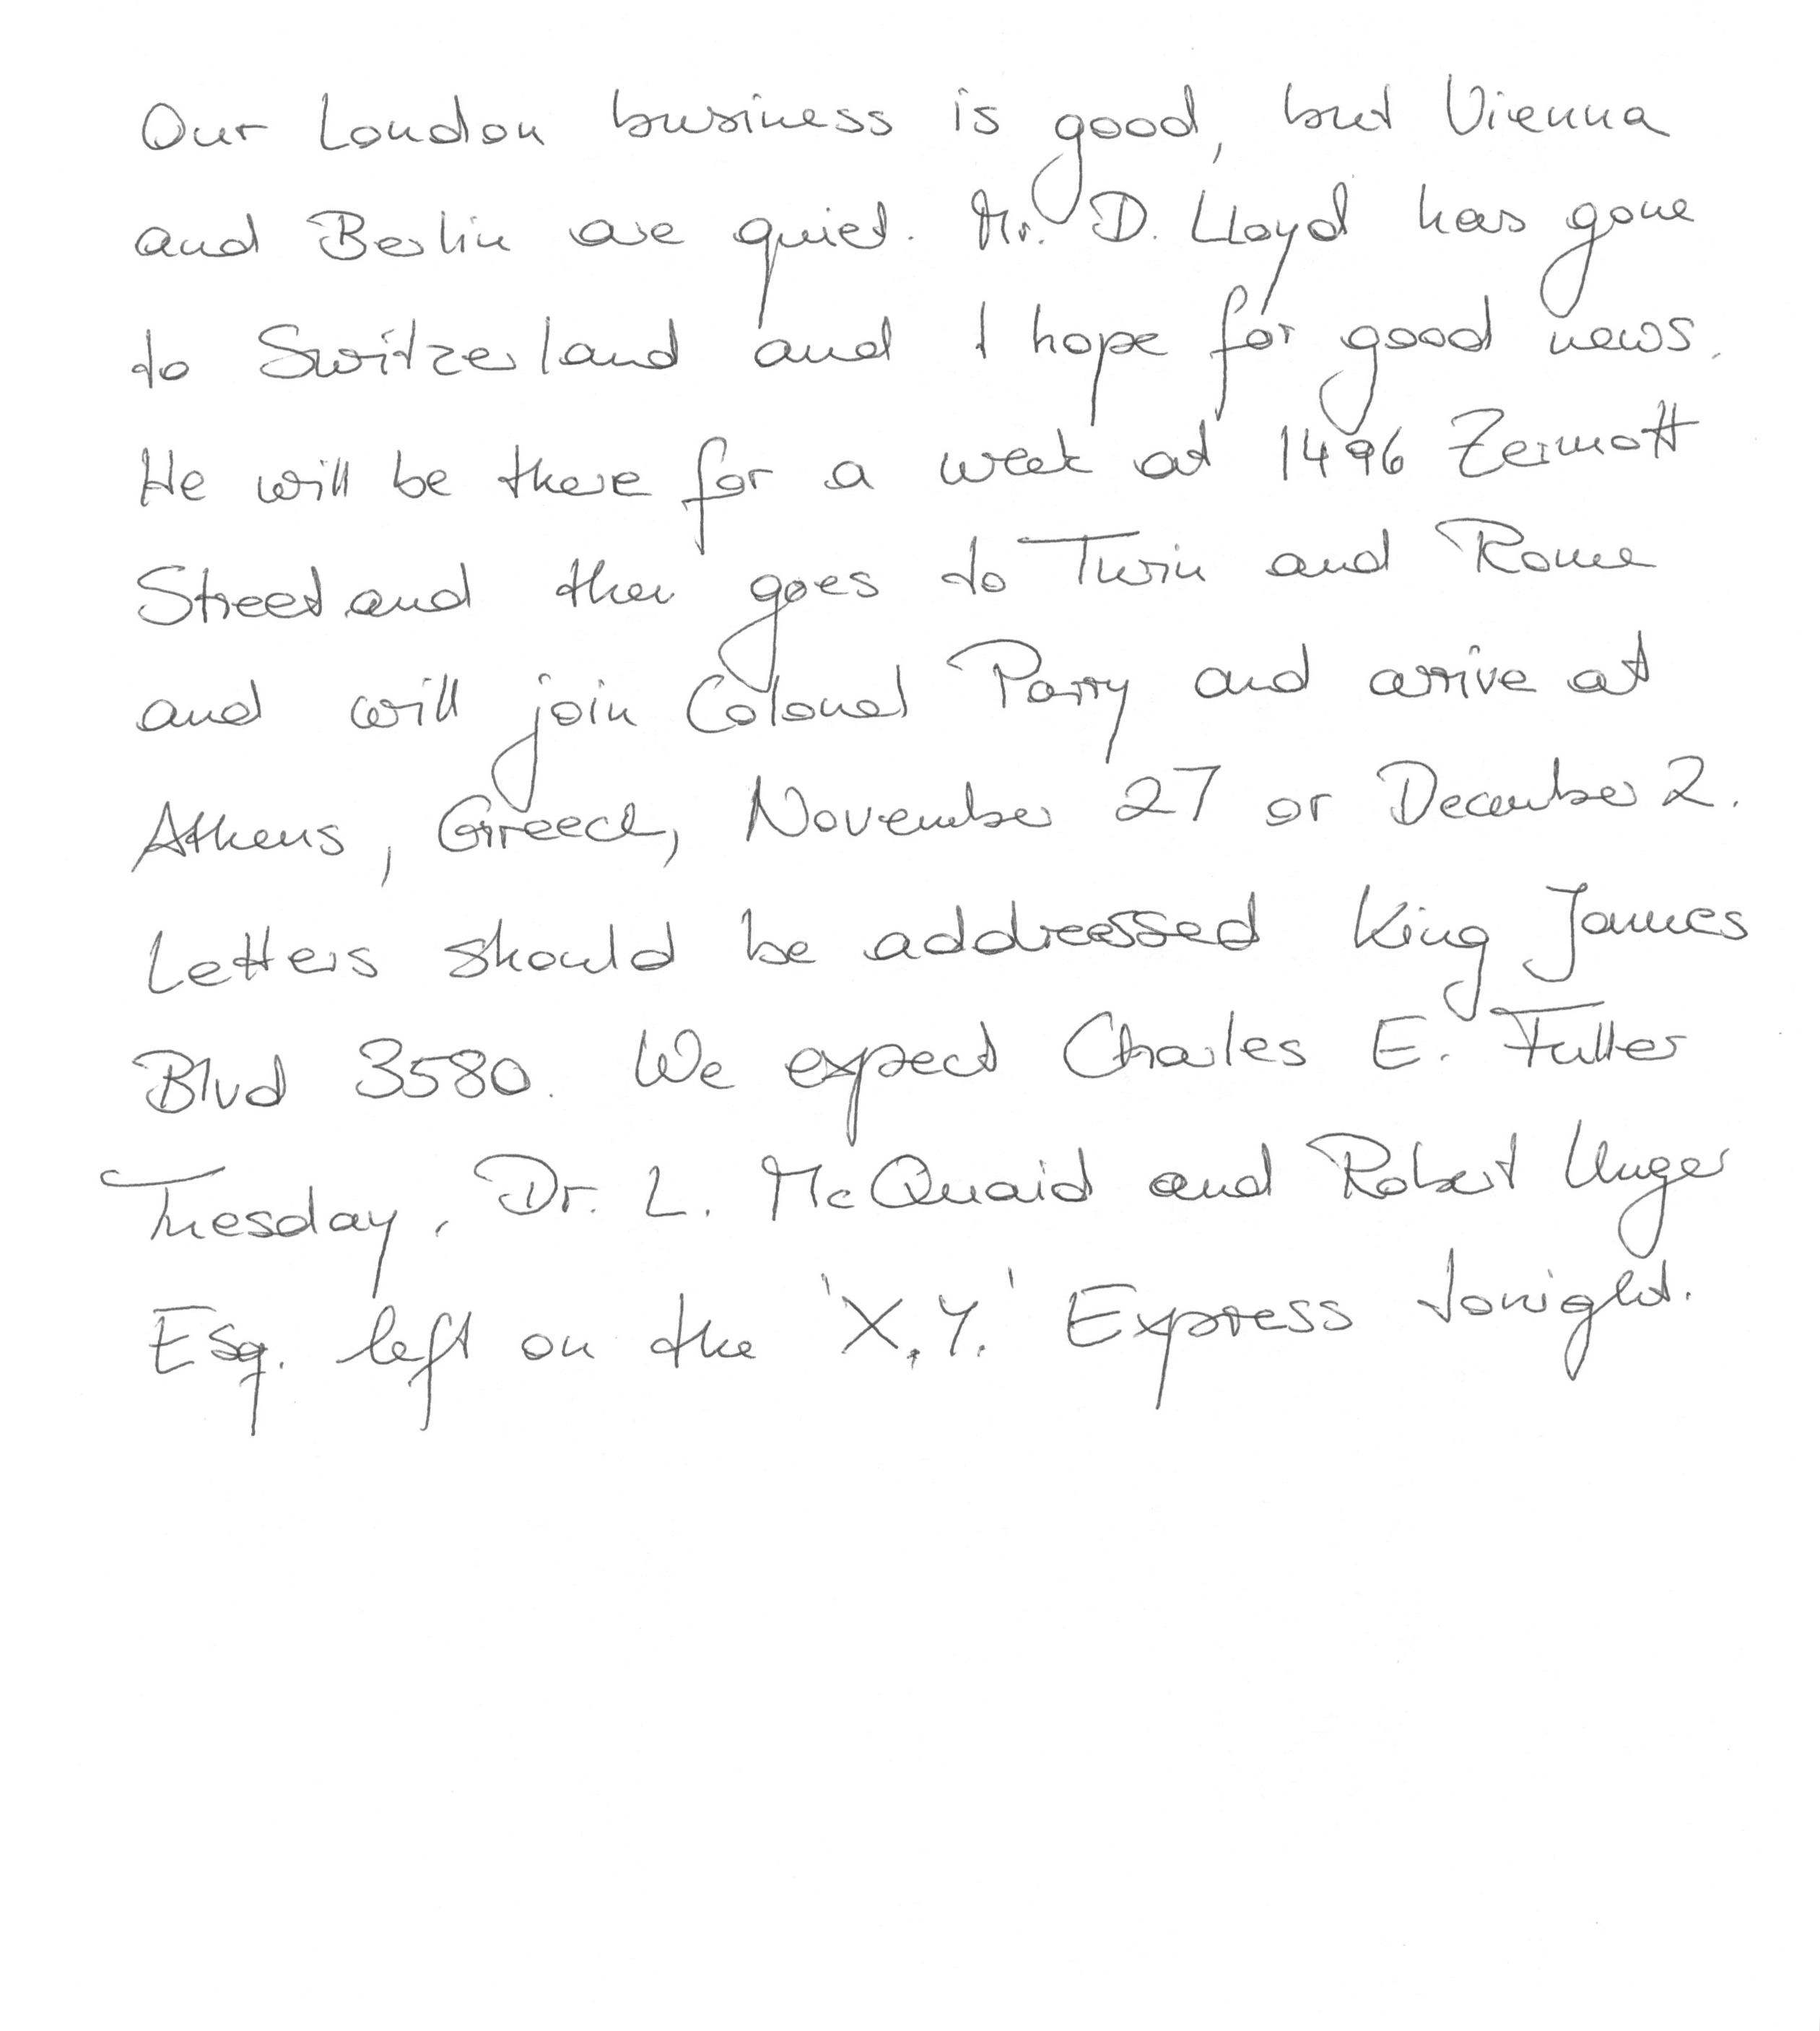 Our London business is good, but Vienna
and Berlin are quiet. Mr. D. Lloyd has gone
to Switzerland and I hope for good news.
He will be there for a week at 1496 Zermott
Street and then goes to Turin and Rome
and will join Colonel Parry and arrive at
Athens, Greece, November 27 or December 2.
Letters should be addressed King James
Blvd 3580. We expect Charles E. Fuller
Tuesday. Dr. L. McQuaid and Robert Unger
Esq. left on the 'X.Y.' Express tonight.